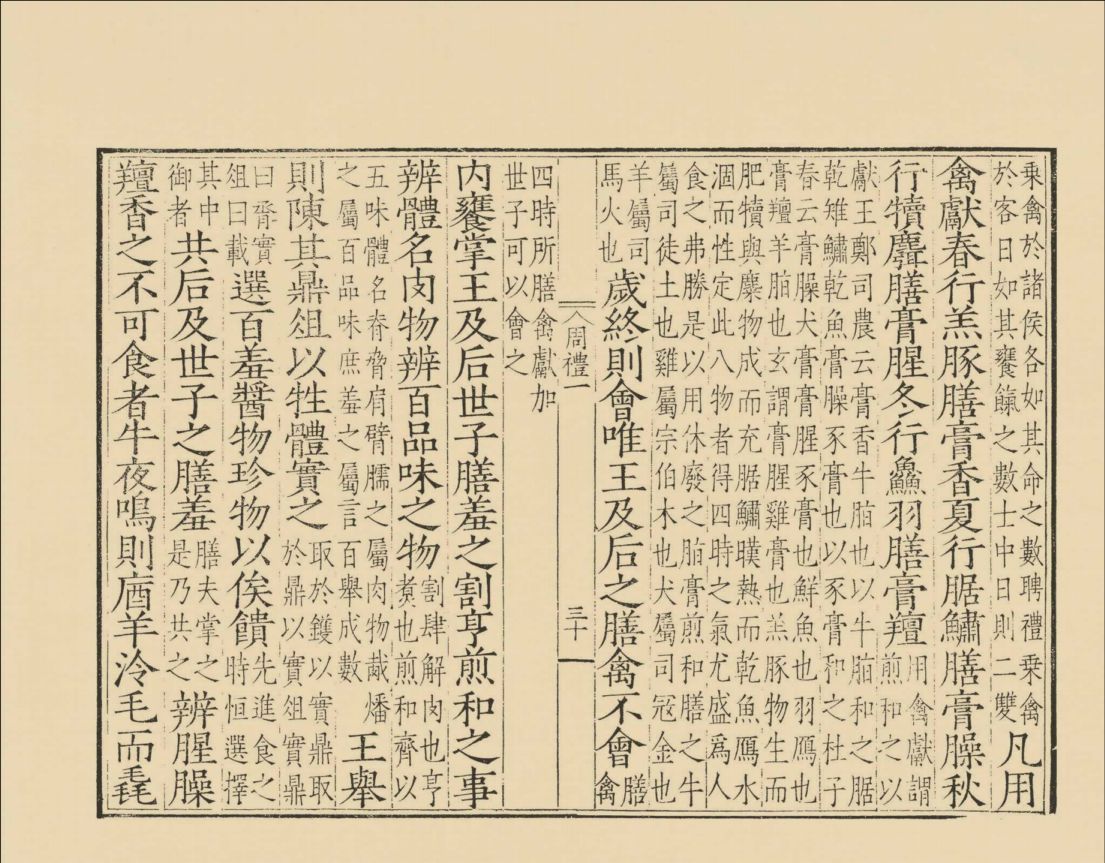 乘禽於諸侯各如其命之數聘禮乘禽於客日如其饔餼之數士中日則二雙凡用
禽獻春行羔豚膳膏香夏行腒鱐膳膏臊秋
行犢麛膳膏腥冬行鱻羽膳膏羶用禽獻謂煎和之以
獻王鄭司農云膏香牛脂也以牛脂和之腒乾雉鱐乾魚膏臊豕膏也以豕膏和之杜子
春云膏臊犬膏膏腥豕膏也鮮魚也羽鴈也膏羶羊脂也玄謂膏腥雞膏也羔豚物生而
肥犢與麋物成而充腒鱐暵熱而乾魚鴈水涸而性定此八物者得四時之氣尤盛爲人
食之弗勝是以用休廢之脂膏煎和膳之牛屬司徒土也雞屬宗伯木也犬屬司冦金也
羊屬司馬火也歲終則會唯王及后之膳禽不會膳禽
周禮一
三十
四時所膳禽獻加世子可以會之
内饔掌王及后世子膳羞之割亨煎和之事
辨體名肉物辨百品味之物割肆解肉也亨煑也煎和齊以
五味體名脊脅肩臂臑之屬肉物胾燔之屬百品味庶羞之屬言百舉成數王舉
則陳其鼎俎以牲體實之取於鑊以實鼎取於鼎以實俎實鼎
曰脀實俎曰載選百羞醬物珍物以俟饋先進食之時恒選擇
其中御者共后及世子之膳羞膳夫掌之是乃共之辨腥臊
羶香之不可食者牛夜鳴則庮羊泠毛而毳